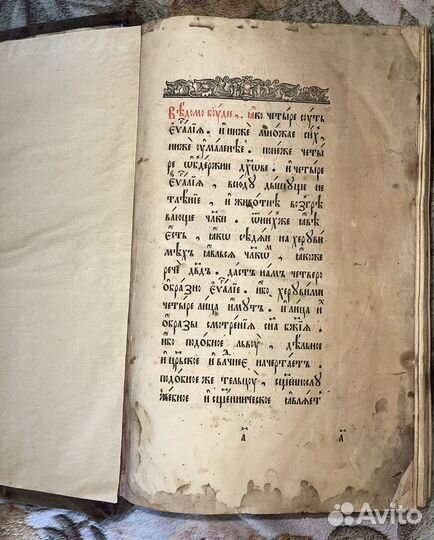 Вѣ́домо бꙋ́ди, ꙗ҆́ко четы́ре сꙋ́ть
є҆ѵⷢ҇лїѧ. и҆ ниже мно́жае си́хъ,
ниже ᲂу҆ма́лене. поне́же четы́
ре ѡ҆б̾де́ржими дх҃ове. и҆ четы́ре
є҆ѵⷢ҇лїѧ, всю́дꙋ ды́шꙋще не
тлѣ́нїе, и҆ живо́тнѣ возгрѣ
ва́юще чл҃ки. ѿ ни́хже ꙗ҆́вѣ
є҆́сть, ꙗ҆́кѡ сѣдѧ́и на херꙋви́
мѣхъ ꙗ҆вльсѧ чл҃кѡмъ, ꙗ҆́коже
речѐ дв҃дъ. да́стъ на́мъ че́тверо
ѡ҆бра́зно є҆ѵⷢ҇лїе. и҆́бо, херꙋви́ми
четы́ре ли́ца и҆́мꙋтъ. и҆ ли́ца и҆́хъ
ѡ҆́бразы смотре́нїѧ сн҃а бж҃їѧ.
и҆́бо подо́бное львꙋ̀, дѣ́льное
и҆ цр҃ское и҆ влⷣчнее начерта́етъ.
подо́бное же тельцꙋ̀, сщ҃еннослꙋ
же́бное и҆ сщ҃е́нническое ꙗ҆влѧ́етъ
а҃ а҃
Avito